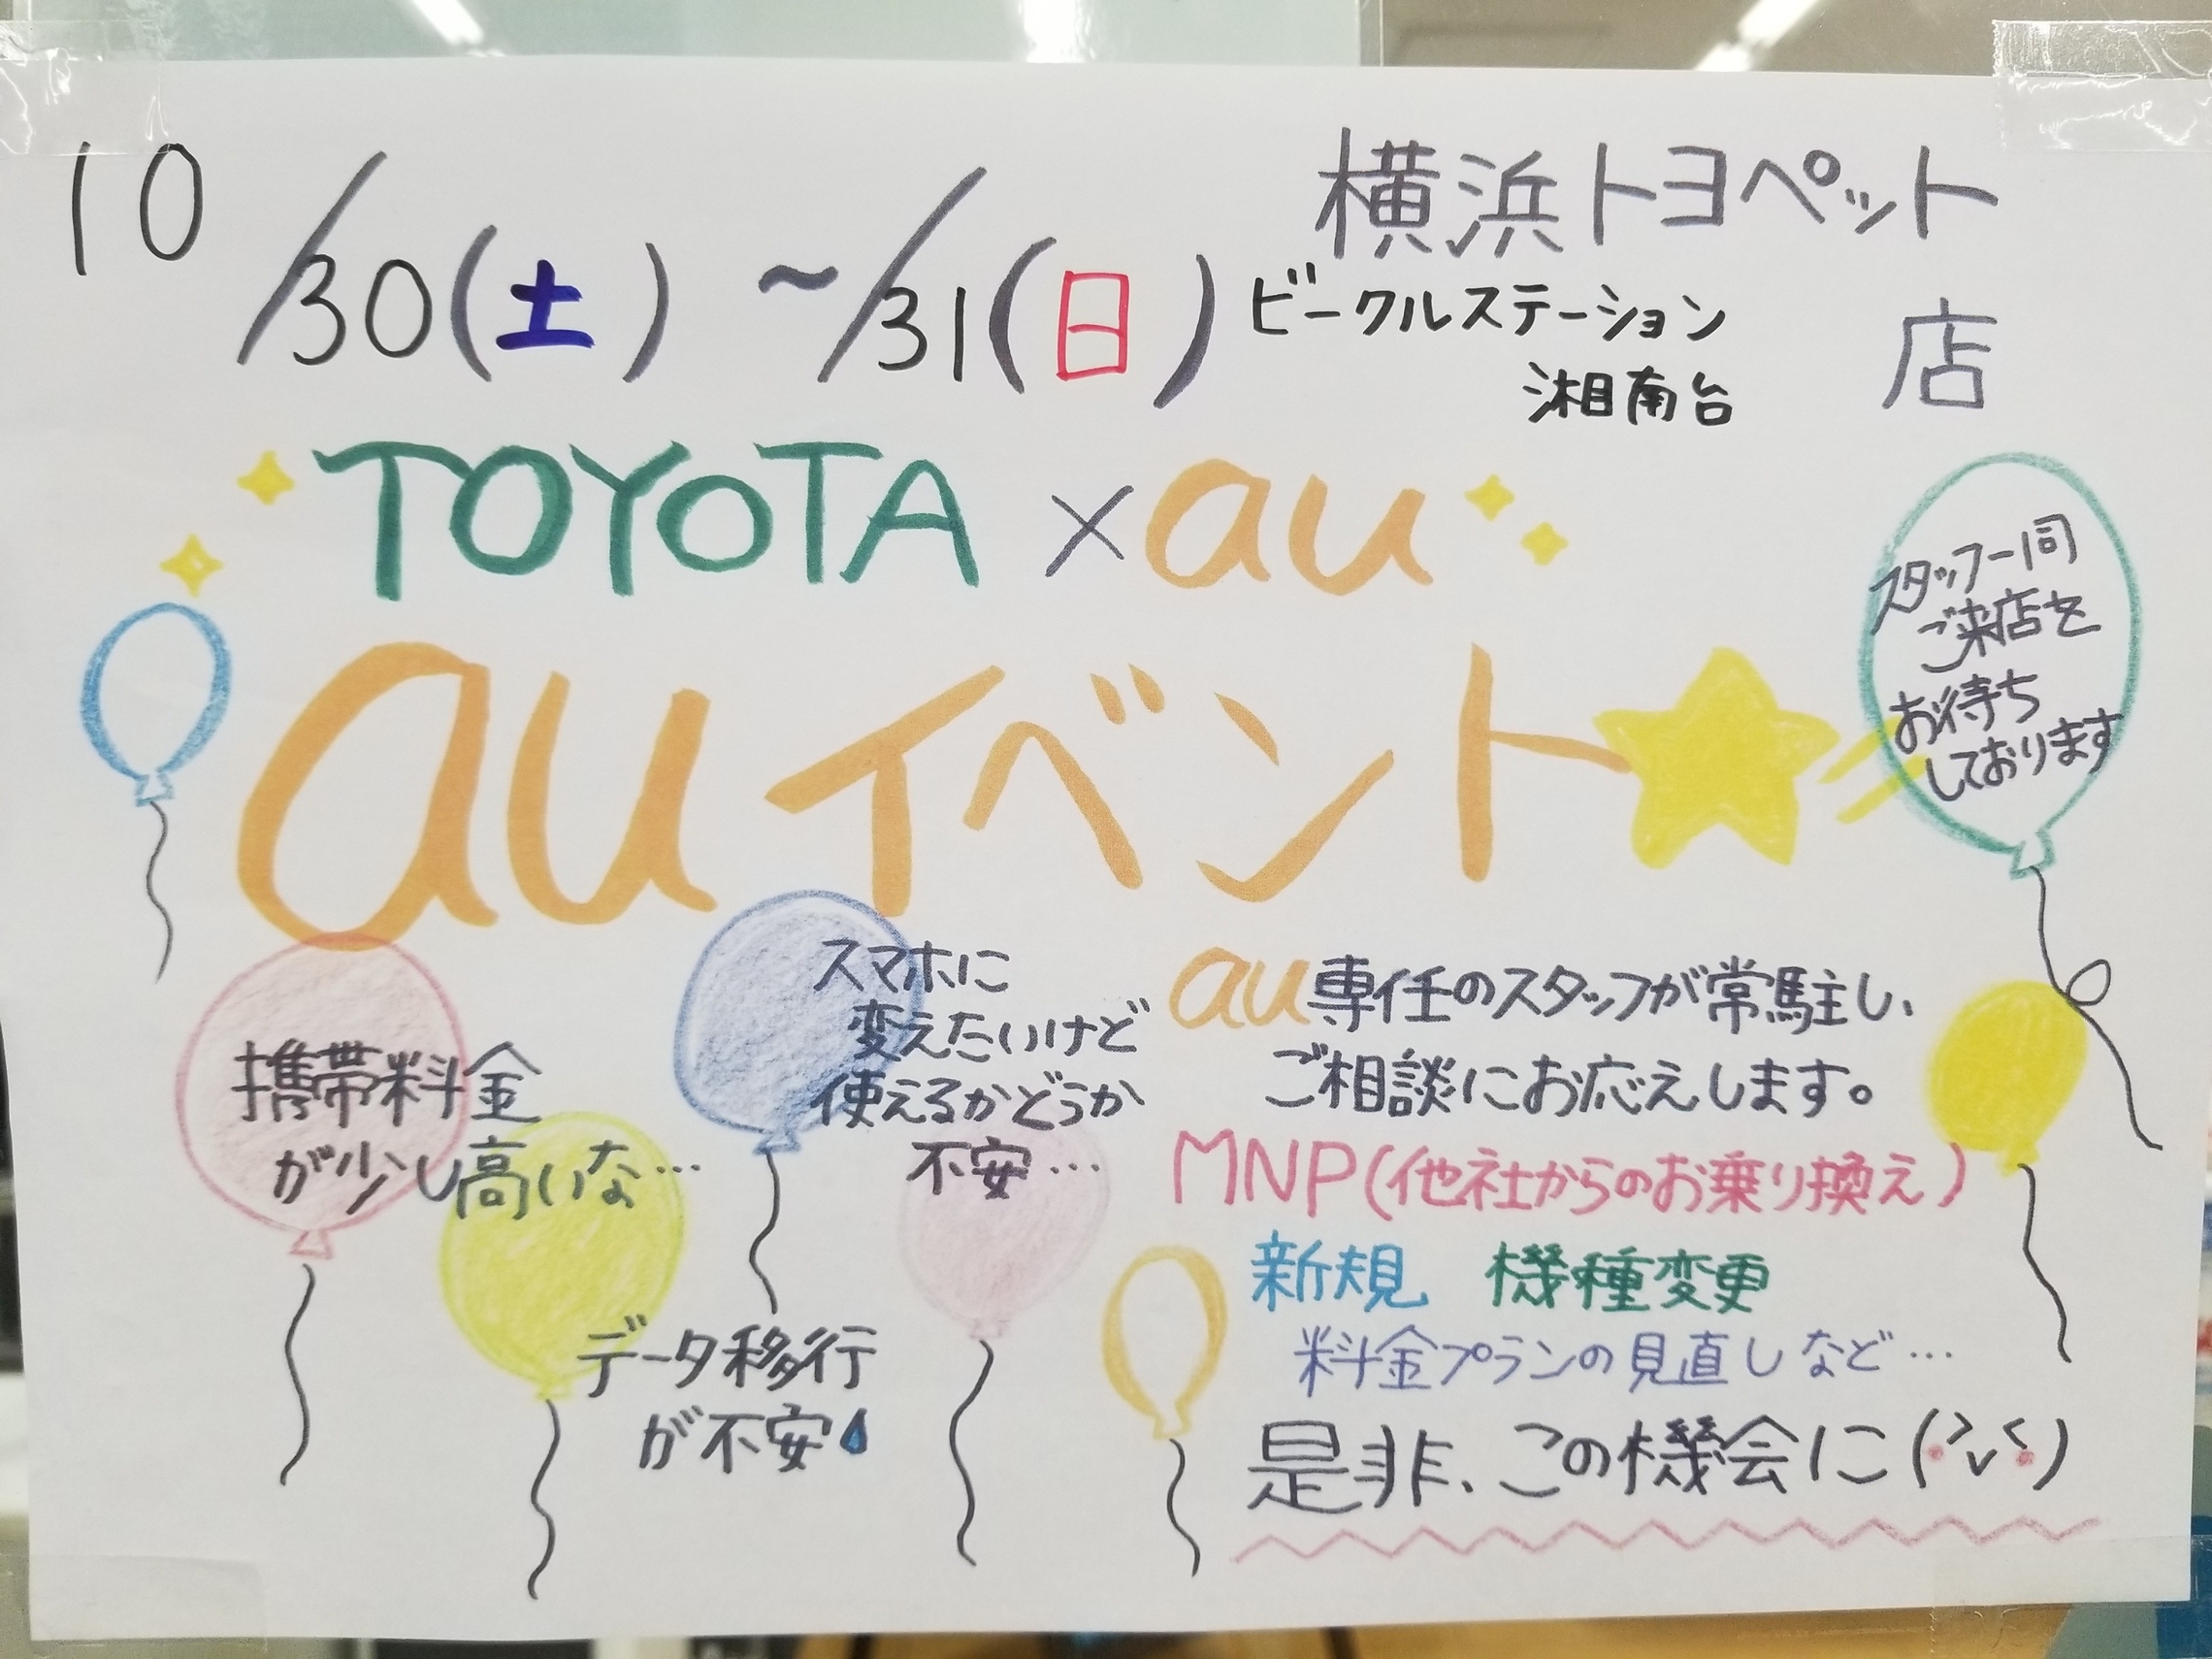 10/30(土)～/31(日)
横浜トヨペット
ビークルステーション
湘南台
店
TOYOTA×au
auイベント
スタッフ一同
ご来店を
お待ち
しております
携帯料金
が少し高いな…
スマホに
変えたいけど
使えるかどうか
不安…
データ移行
が不安
au専任のスタッフが常駐し、
ご相談にお応えします。
MNP(他社からのお乗り換え)
新規 機種変更
料金プランの見直しなど…
是非、この機会に(>v<)